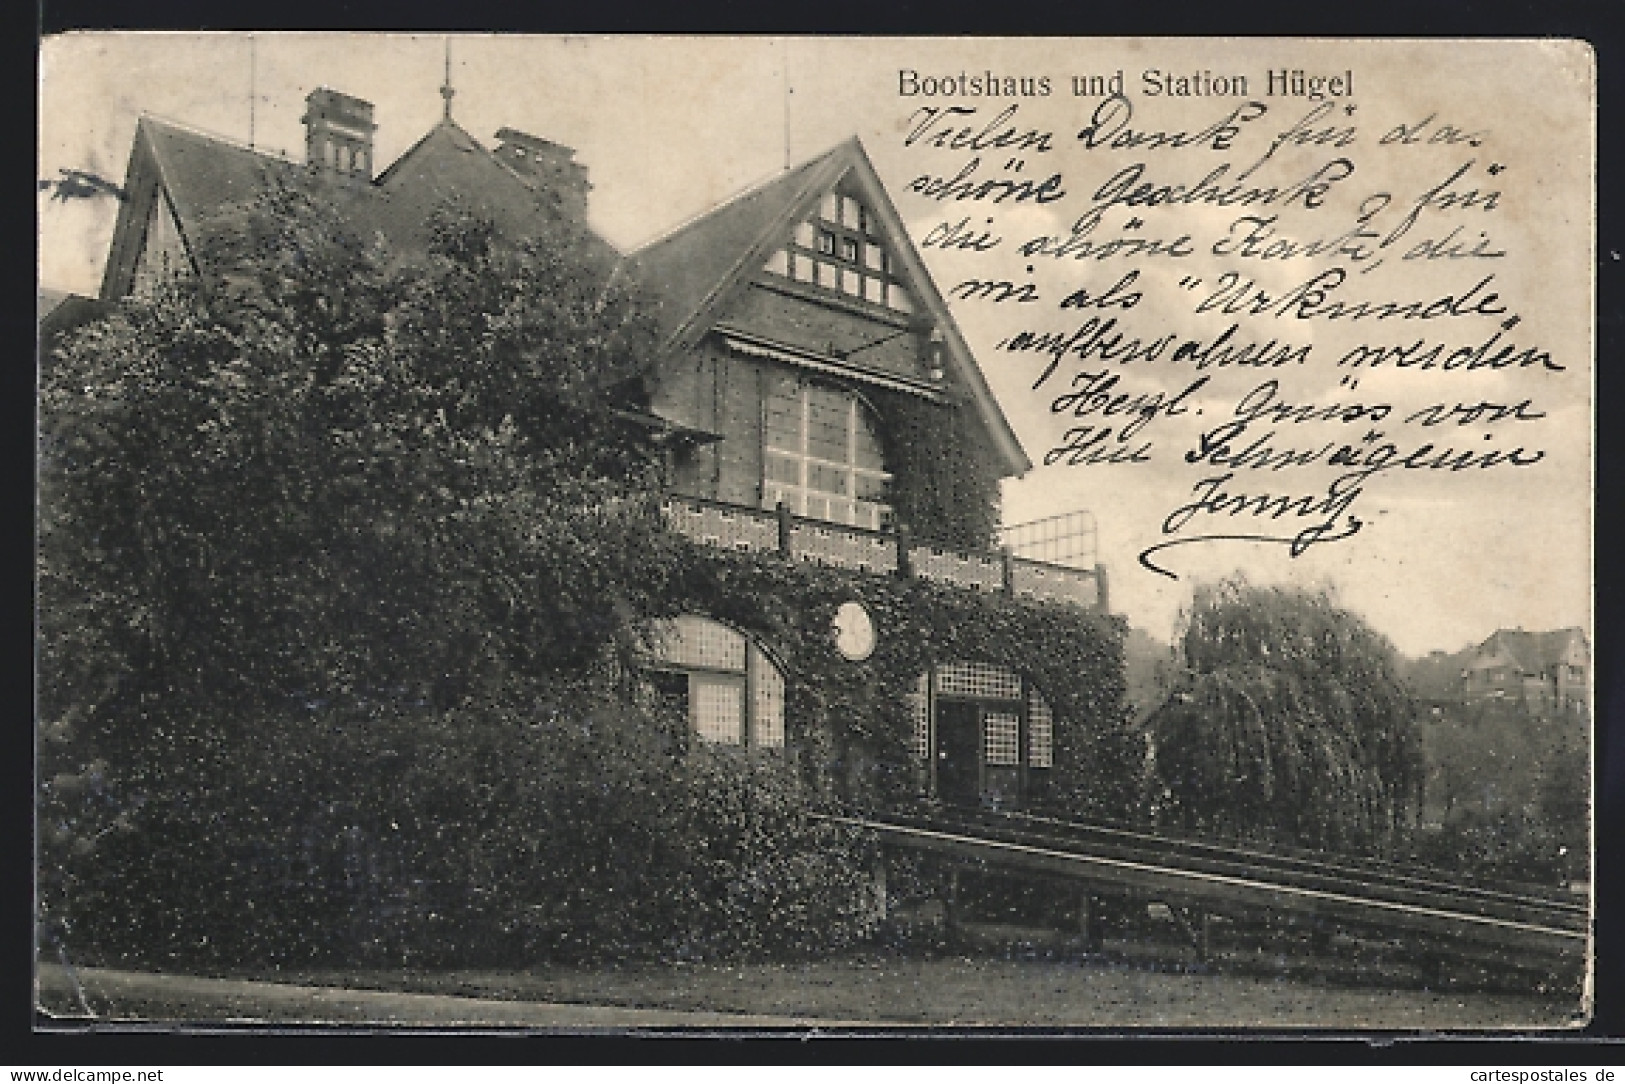 Bootshaus und Station Hügel
Vielen Dank für das
schöne Geschenk, für
die schöne Karte, die
mir als "Urkunde"
aufbewahren werden
Herzl. Grüss von
Ihre Schwägerin
Jenny
delcampe.net
cartespostales de